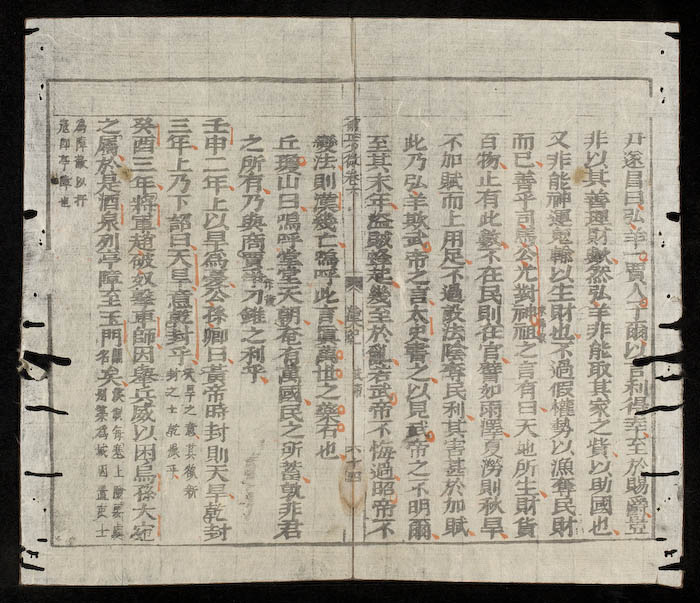 尹遂昌曰弘羊一賈人子爾以言利得幸至於賜爵豈
非以其善理財歟然弘羊非能取其家之貲以助國也
又非能神運鬼輸以生財也不過假權勢以漁奪民財
而已善乎司馬公光對神祖之言有曰天地所生財貨
百物止有此數不在民則在官譬如雨澤夏澇則秋旱
不加賦而上用足不過設法陰奪民利其害甚於加賦
此乃弘羊欺武帝之言太史書之以見武帝之不明爾
至其末年盜賊蜂起幾至於亂若武帝不悔過昭帝不
變法則漢幾亡嗚呼此言眞萬世之藥石也
丘瓊山曰嗚呼堂堂天朝奄有萬國民之所蓄孰非君
之所有乃與商賈爭刀錐之利乎
壬申二年上以旱爲憂公孫卿曰黃帝時封則天旱乾封
三年上乃下詔曰天旱意乾封乎天旱之意其欲新封之土乾燥乎
癸酉三年將軍趙破奴擊車師因舉兵威以困烏孫大宛
之屬於是酒泉列亭障至玉門關名矣漢制每塞上險要處別築爲城因置吏士
爲障蔽以扞
寇即亭障也